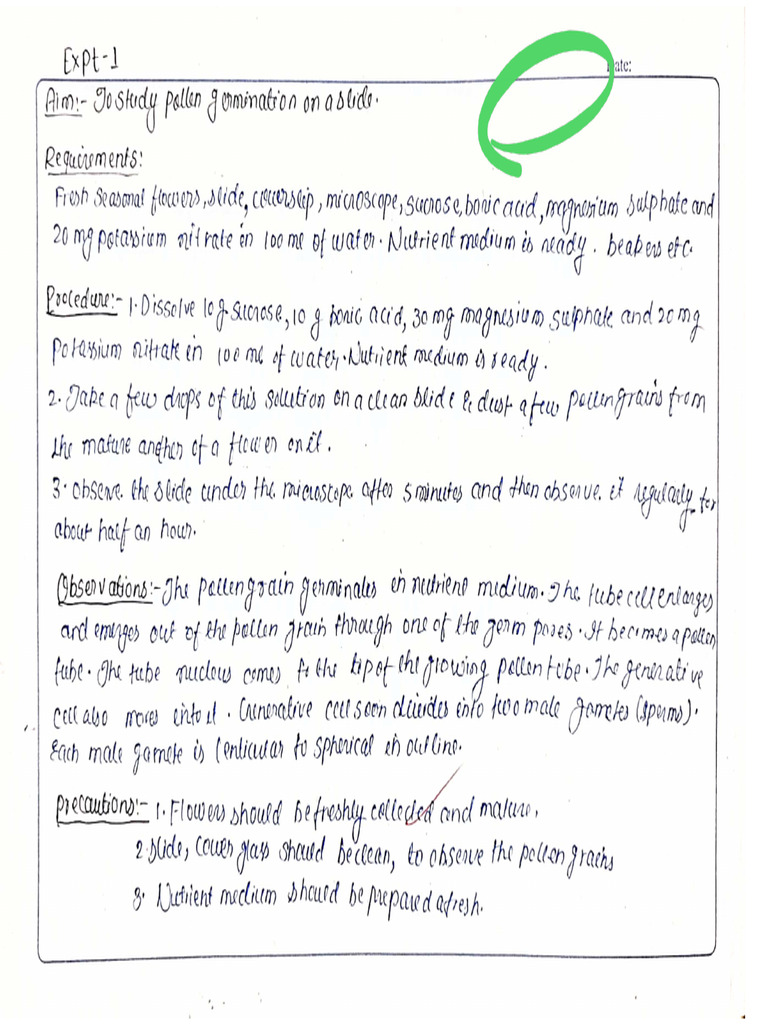 Expt-1
Date:
Aim:- To study pollen germination on a slide.
Requirements:
Fresh seasonal flowers, slide, coverslip, microscope, sucrose, boric acid, magnesium sulphate and
20 mg potassium nitrate in 100 ml of water. Nutrient medium is ready. beakers etc.
Procedure:- 1. Dissolve 10 g sucrose, 10 g boric acid, 30 mg magnesium sulphate and 20 mg
potassium nitrate in 100 ml of water. Nutrient medium is ready.
2. Take a few drops of this solution on a clean slide & dust a few pollen grains from
the mature anther of a flower on it.
3. Observe the slide under the microscope after 5 minutes and then observe it regularly for
about half an hour.
Observations:- The pollen grain germinates in nutrient medium. The tube cell enlarges
and emerges out of the pollen grain through one of the germ pores. It becomes a pollen
tube. The tube nucleus comes to the tip of the growing pollen tube. The generative
cell also moves into it. Generative cell soon divides into two male gametes (sperms).
Each male gamete is lenticular to spherical in outline.
Precautions:- 1. Flowers should be freshly collected and mature.
2. Slide, cover glass should be clean, to observe the pollen grains
3. Nutrient medium should be prepared afresh.